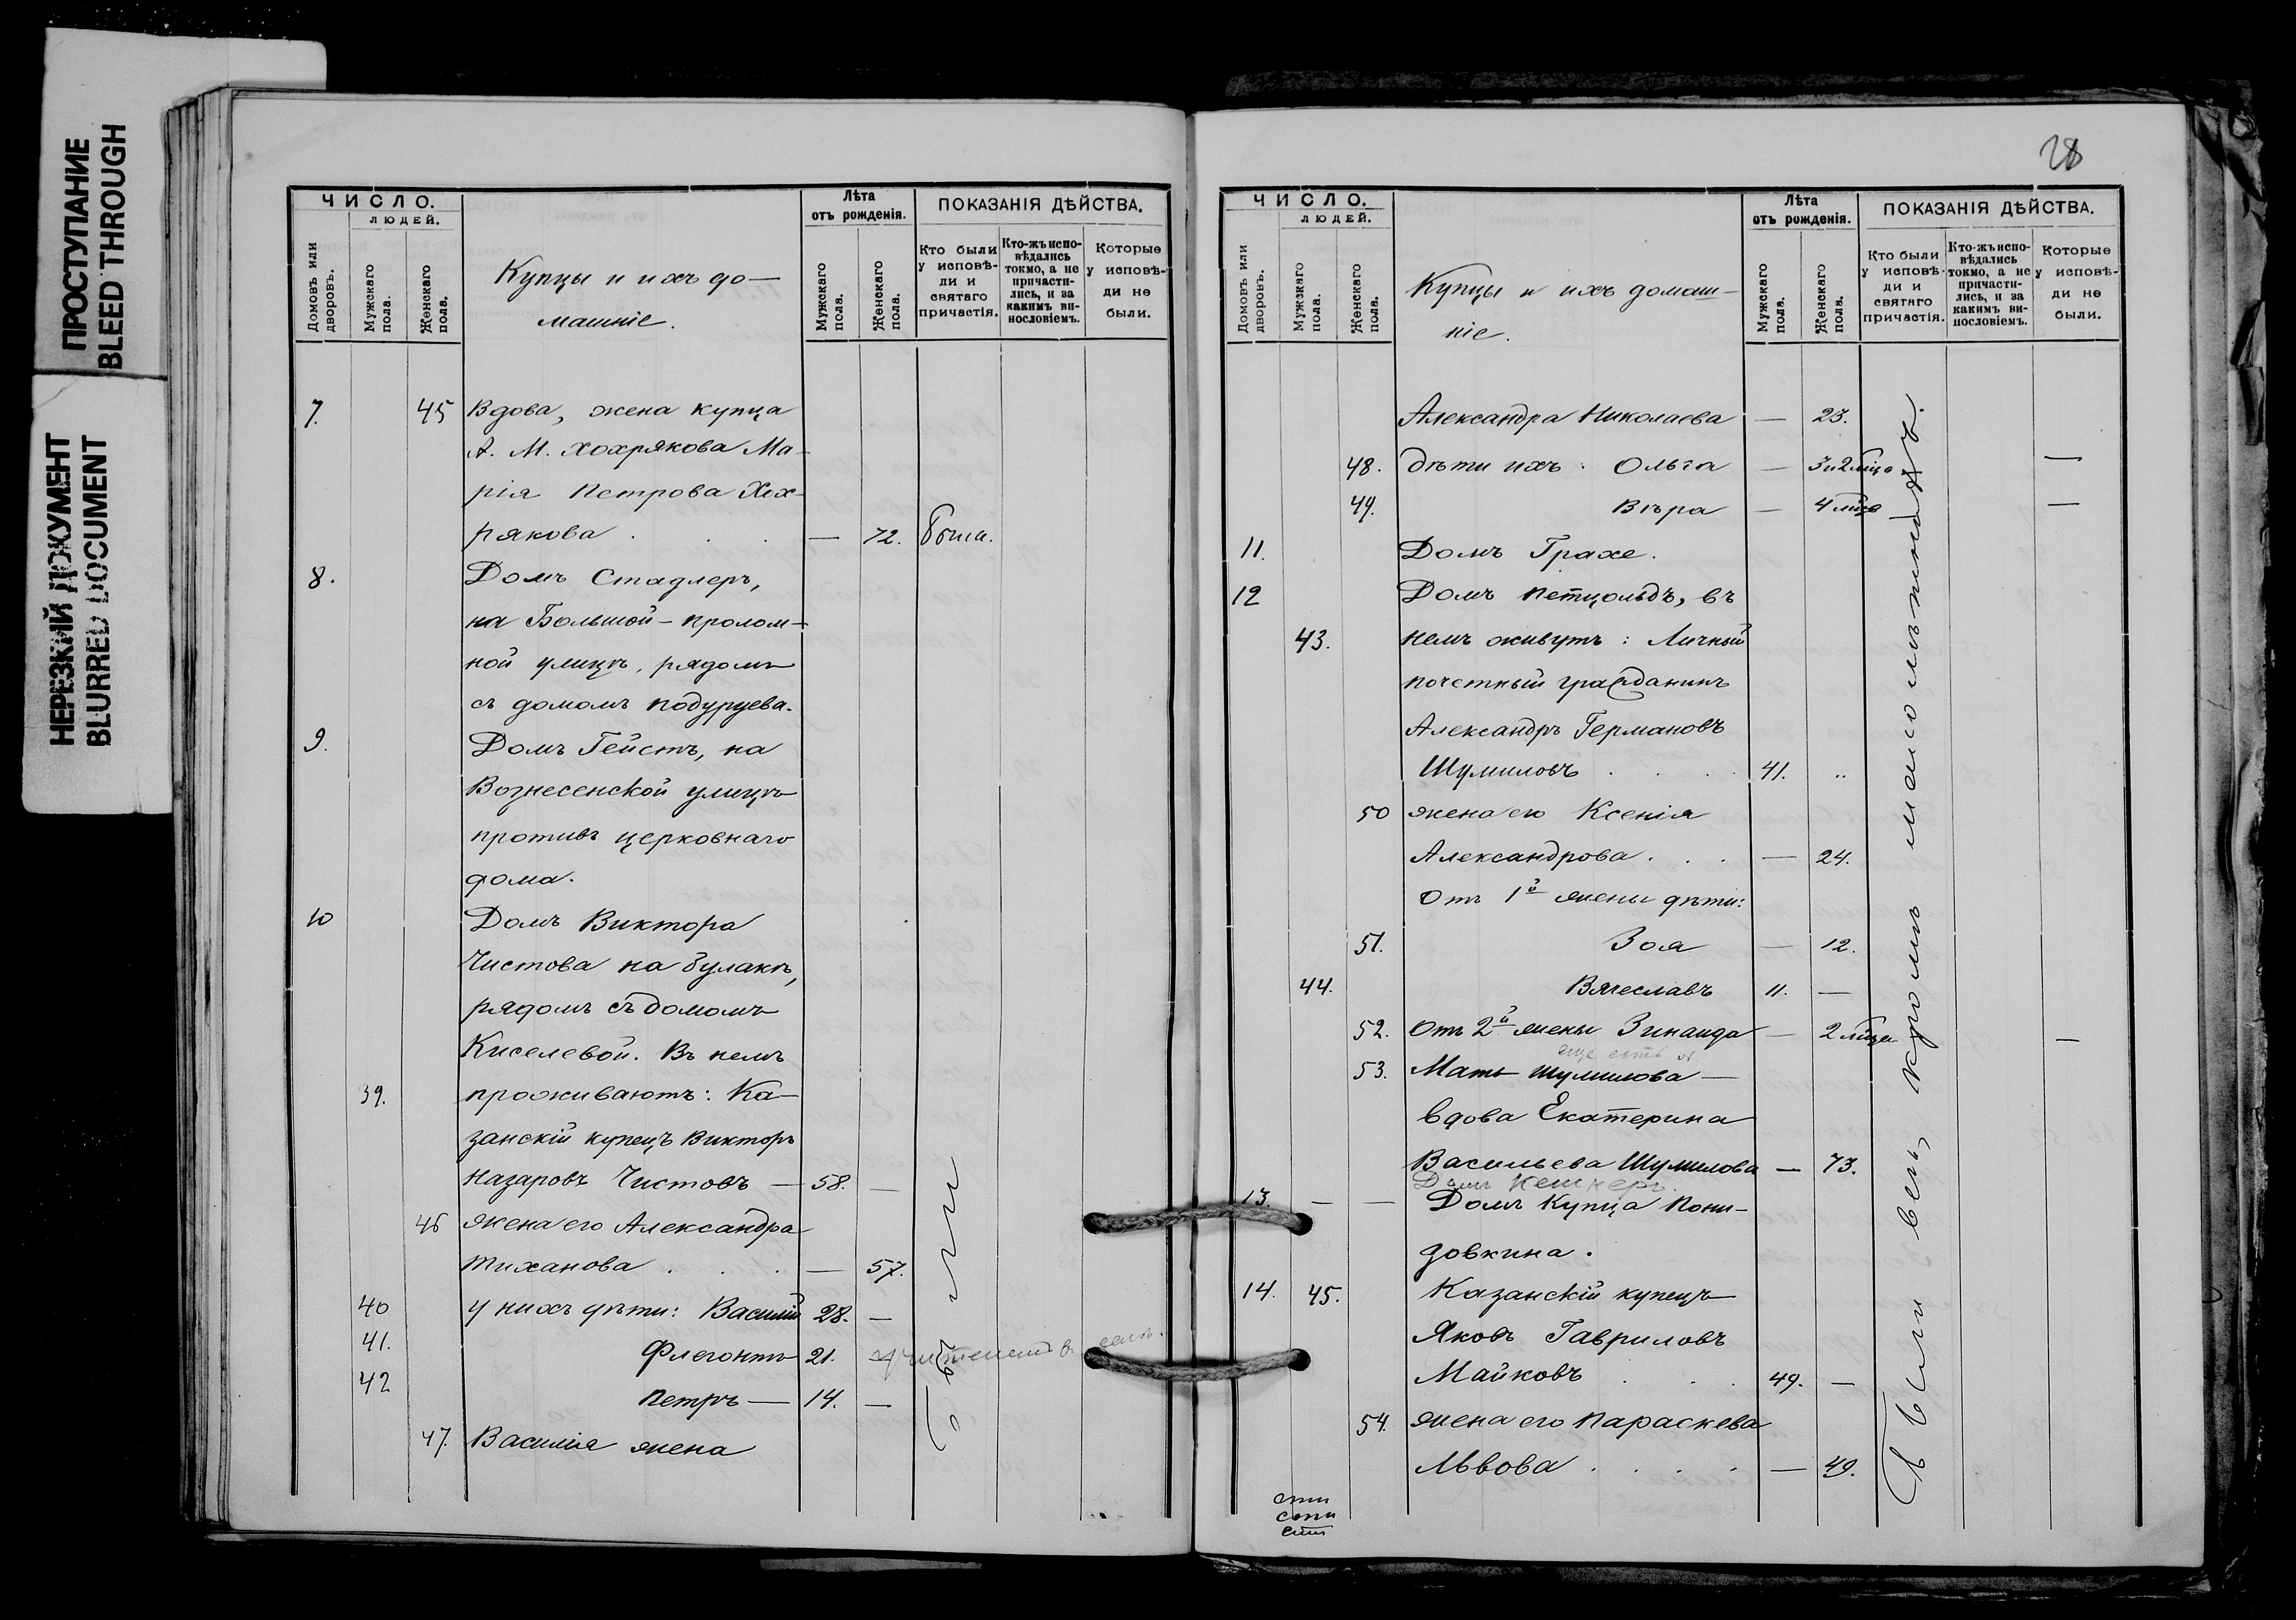 ПРОСТУПАНИЕ
BLEED THROUGH
НЕРЕЗКИЙ ДОКУМЕНТ
BLURRED DOCUMENT
ЧИСЛО.
людей.
Домовъ или дворовъ.
Мужскаго пола.
Женскаго пола.
Купцы и ихъ до-
машніе.
Лѣта
отъ рожденія.
Мужскаго пола.
Женскаго пола.
ПОКАЗАНІЯ ДѢЙСТВА.
Кто были у исповѣ-ди и святаго причастія.
Кто-жъ испо-вѣдались токмо, а не причасти-лись, и за какимъ ви-нословіемъ.
Которые у исповѣ-ди не были.
7. 45 Вдова, жена купца
А. М. Хохрякова Ма-
рія Петрова Хох-
рякова . . . — 72. была.
8. Домъ Стадлеръ,
на Большой-пролом-
ной улицѣ, рядомъ
съ домомъ Подуруева.
9. Домъ Гейстъ, на
Вознесенской улицѣ
противъ церковнаго
дома.
10 Домъ Виктора
Чистова на булакѣ,
рядомъ съ домомъ
Киселевой. Въ немъ
39. проживаютъ: Ка-
занскій купецъ Викторъ
Назаровъ Чистовъ — 58. —
46 жена его Александра
Тиханова . . . — 57.
40 у нихъ дѣти: Василій 28. —
41. Флегонтъ 21. —
42 Петръ — 14. —
47. Василія жена
Были
28
ЧИСЛО.
людей.
Домовъ или дворовъ.
Мужскаго пола.
Женскаго пола.
Купцы и ихъ домаш-
ніе.
Лѣта
отъ рожденія.
Мужскаго пола.
Женскаго пола.
ПОКАЗАНІЯ ДѢЙСТВА.
Кто были у исповѣ-ди и святаго причастія.
Кто-жъ испо-вѣдались токмо, а не причасти-лись, и за какимъ ви-нословіемъ.
Которые у исповѣ-ди не были.
Александра Николаева — 23.
48. дѣти ихъ: Ольга — 3и2мѣс —
49. Вѣра — 4 мѣс —
11. Домъ Грахе.
12 Домъ Петцольдъ, въ
43. немъ живутъ: Личный
почетный гражданинъ
Александръ Германовъ
Шумиловъ . . . 41. „
50 жена его Ксенія
Александрова . . . — 24.
Отъ 1й жены дѣти:
51. Зоя — 12.
44. Вячеславъ 11. —
52. Отъ 2й жены Зинаида — 2 мѣся —
еще есть
53. Мать Шумилова —
вдова Екатерина
Васильева Шумилова — 73.
Домъ Кешнеръ
13. — — Домъ купца Пони-
довкина.
14. 45. Казанскій купецъ
Яковъ Гавриловъ
Майковъ . . . 49. —
54. жена его Параскева
Львова . . . . — 49.
Были всѣ, кромѣ малолѣтнихъ.